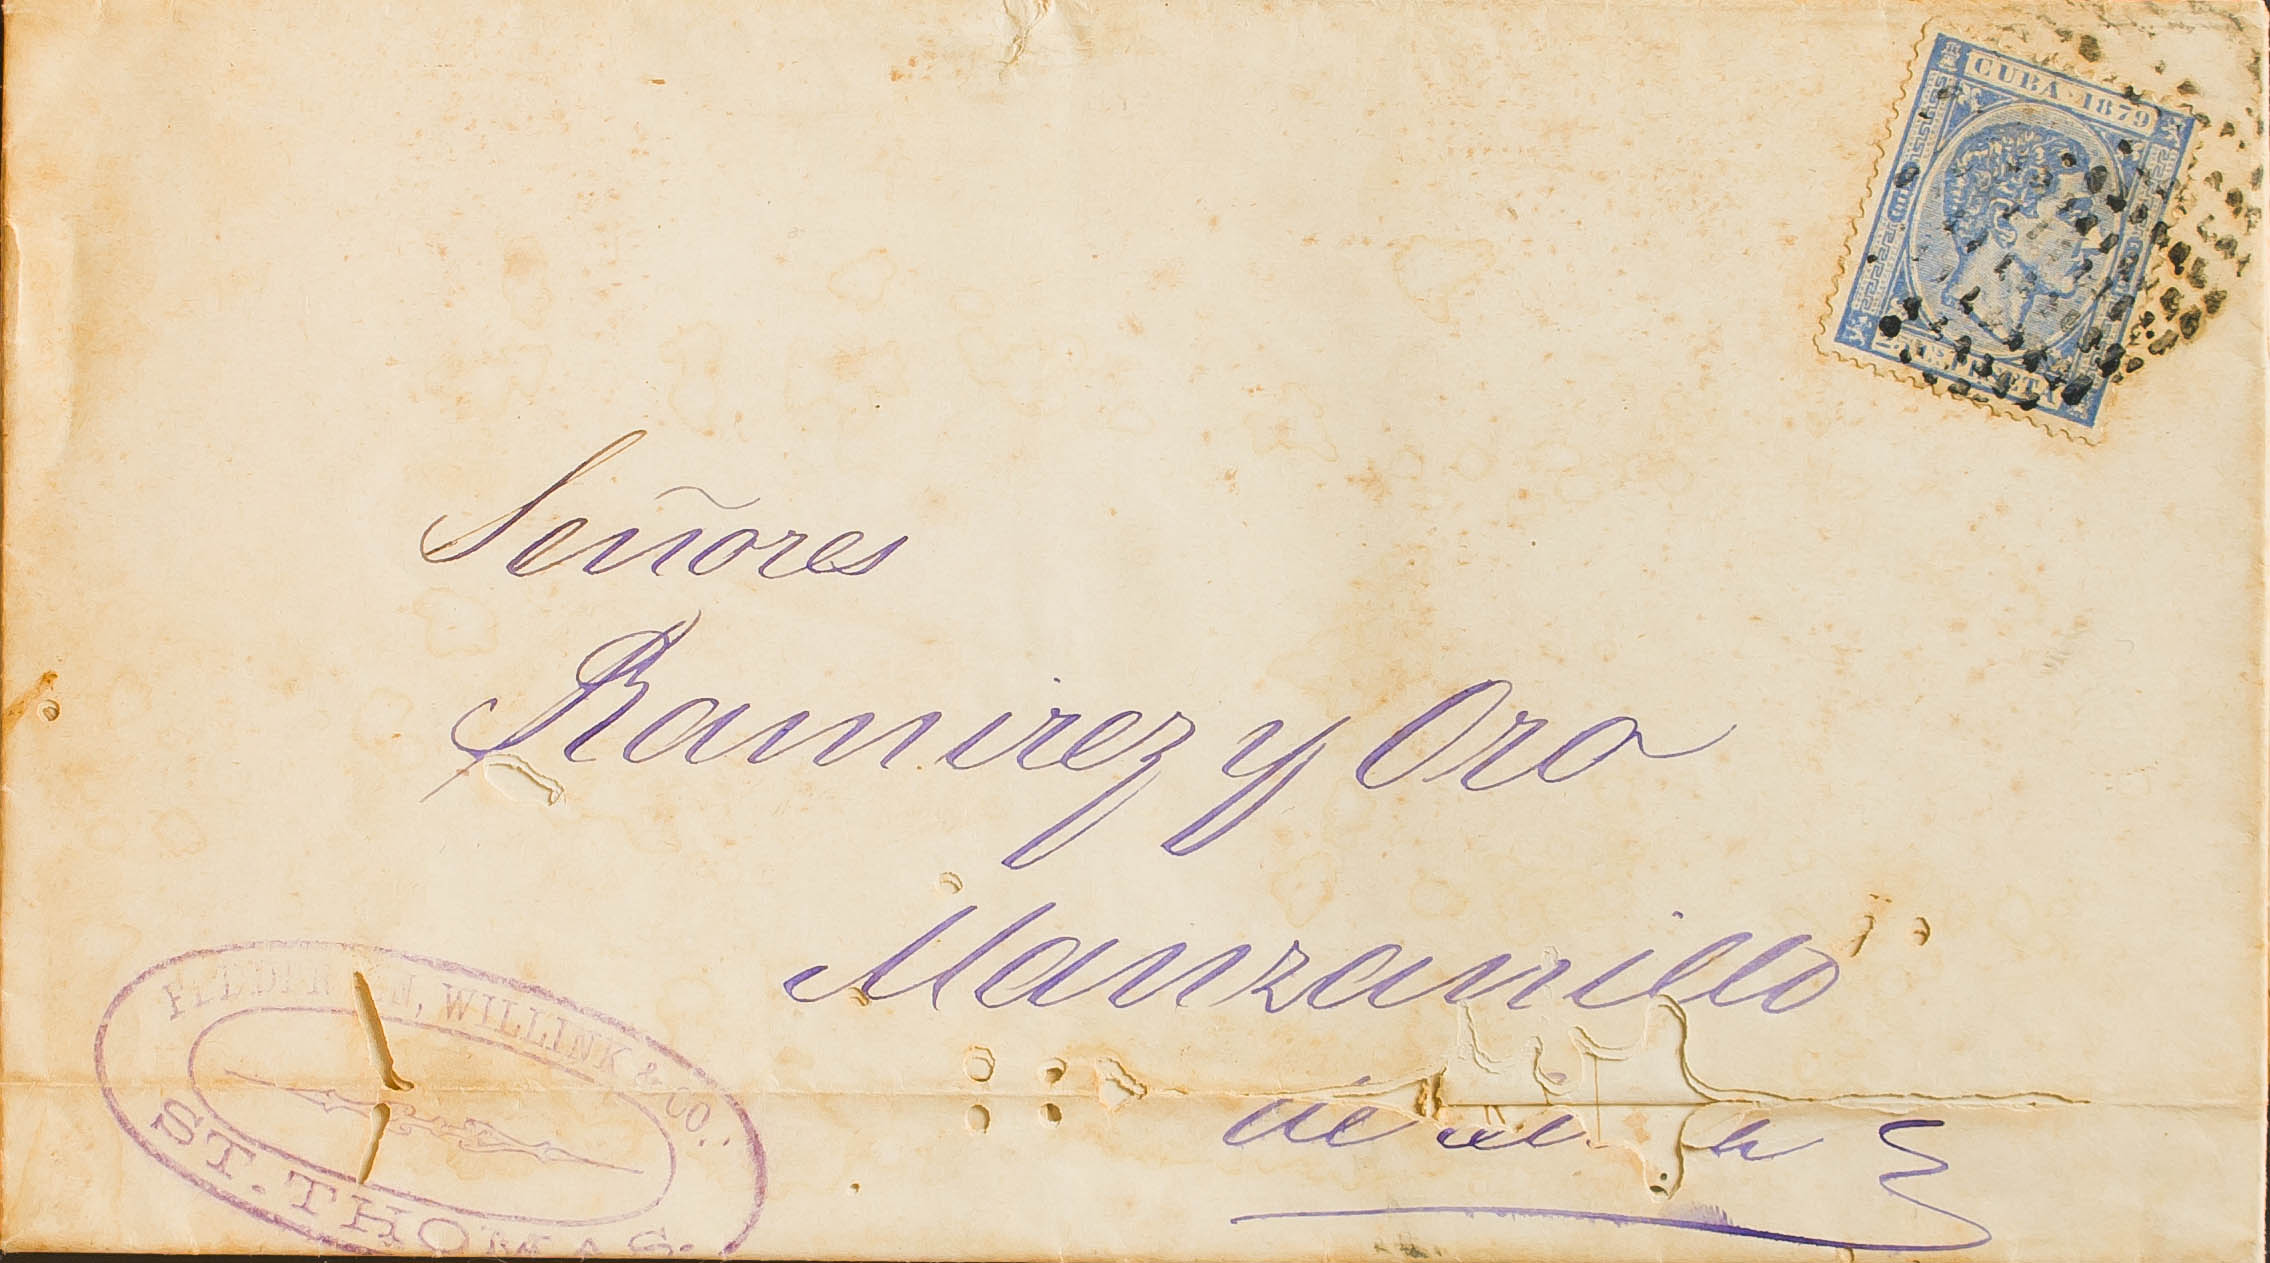 CUBA·1879
PESETA
Señores
Ramirez y Oro
Manzanillo
de
WILLINK & CO.
ST. THOMAS.